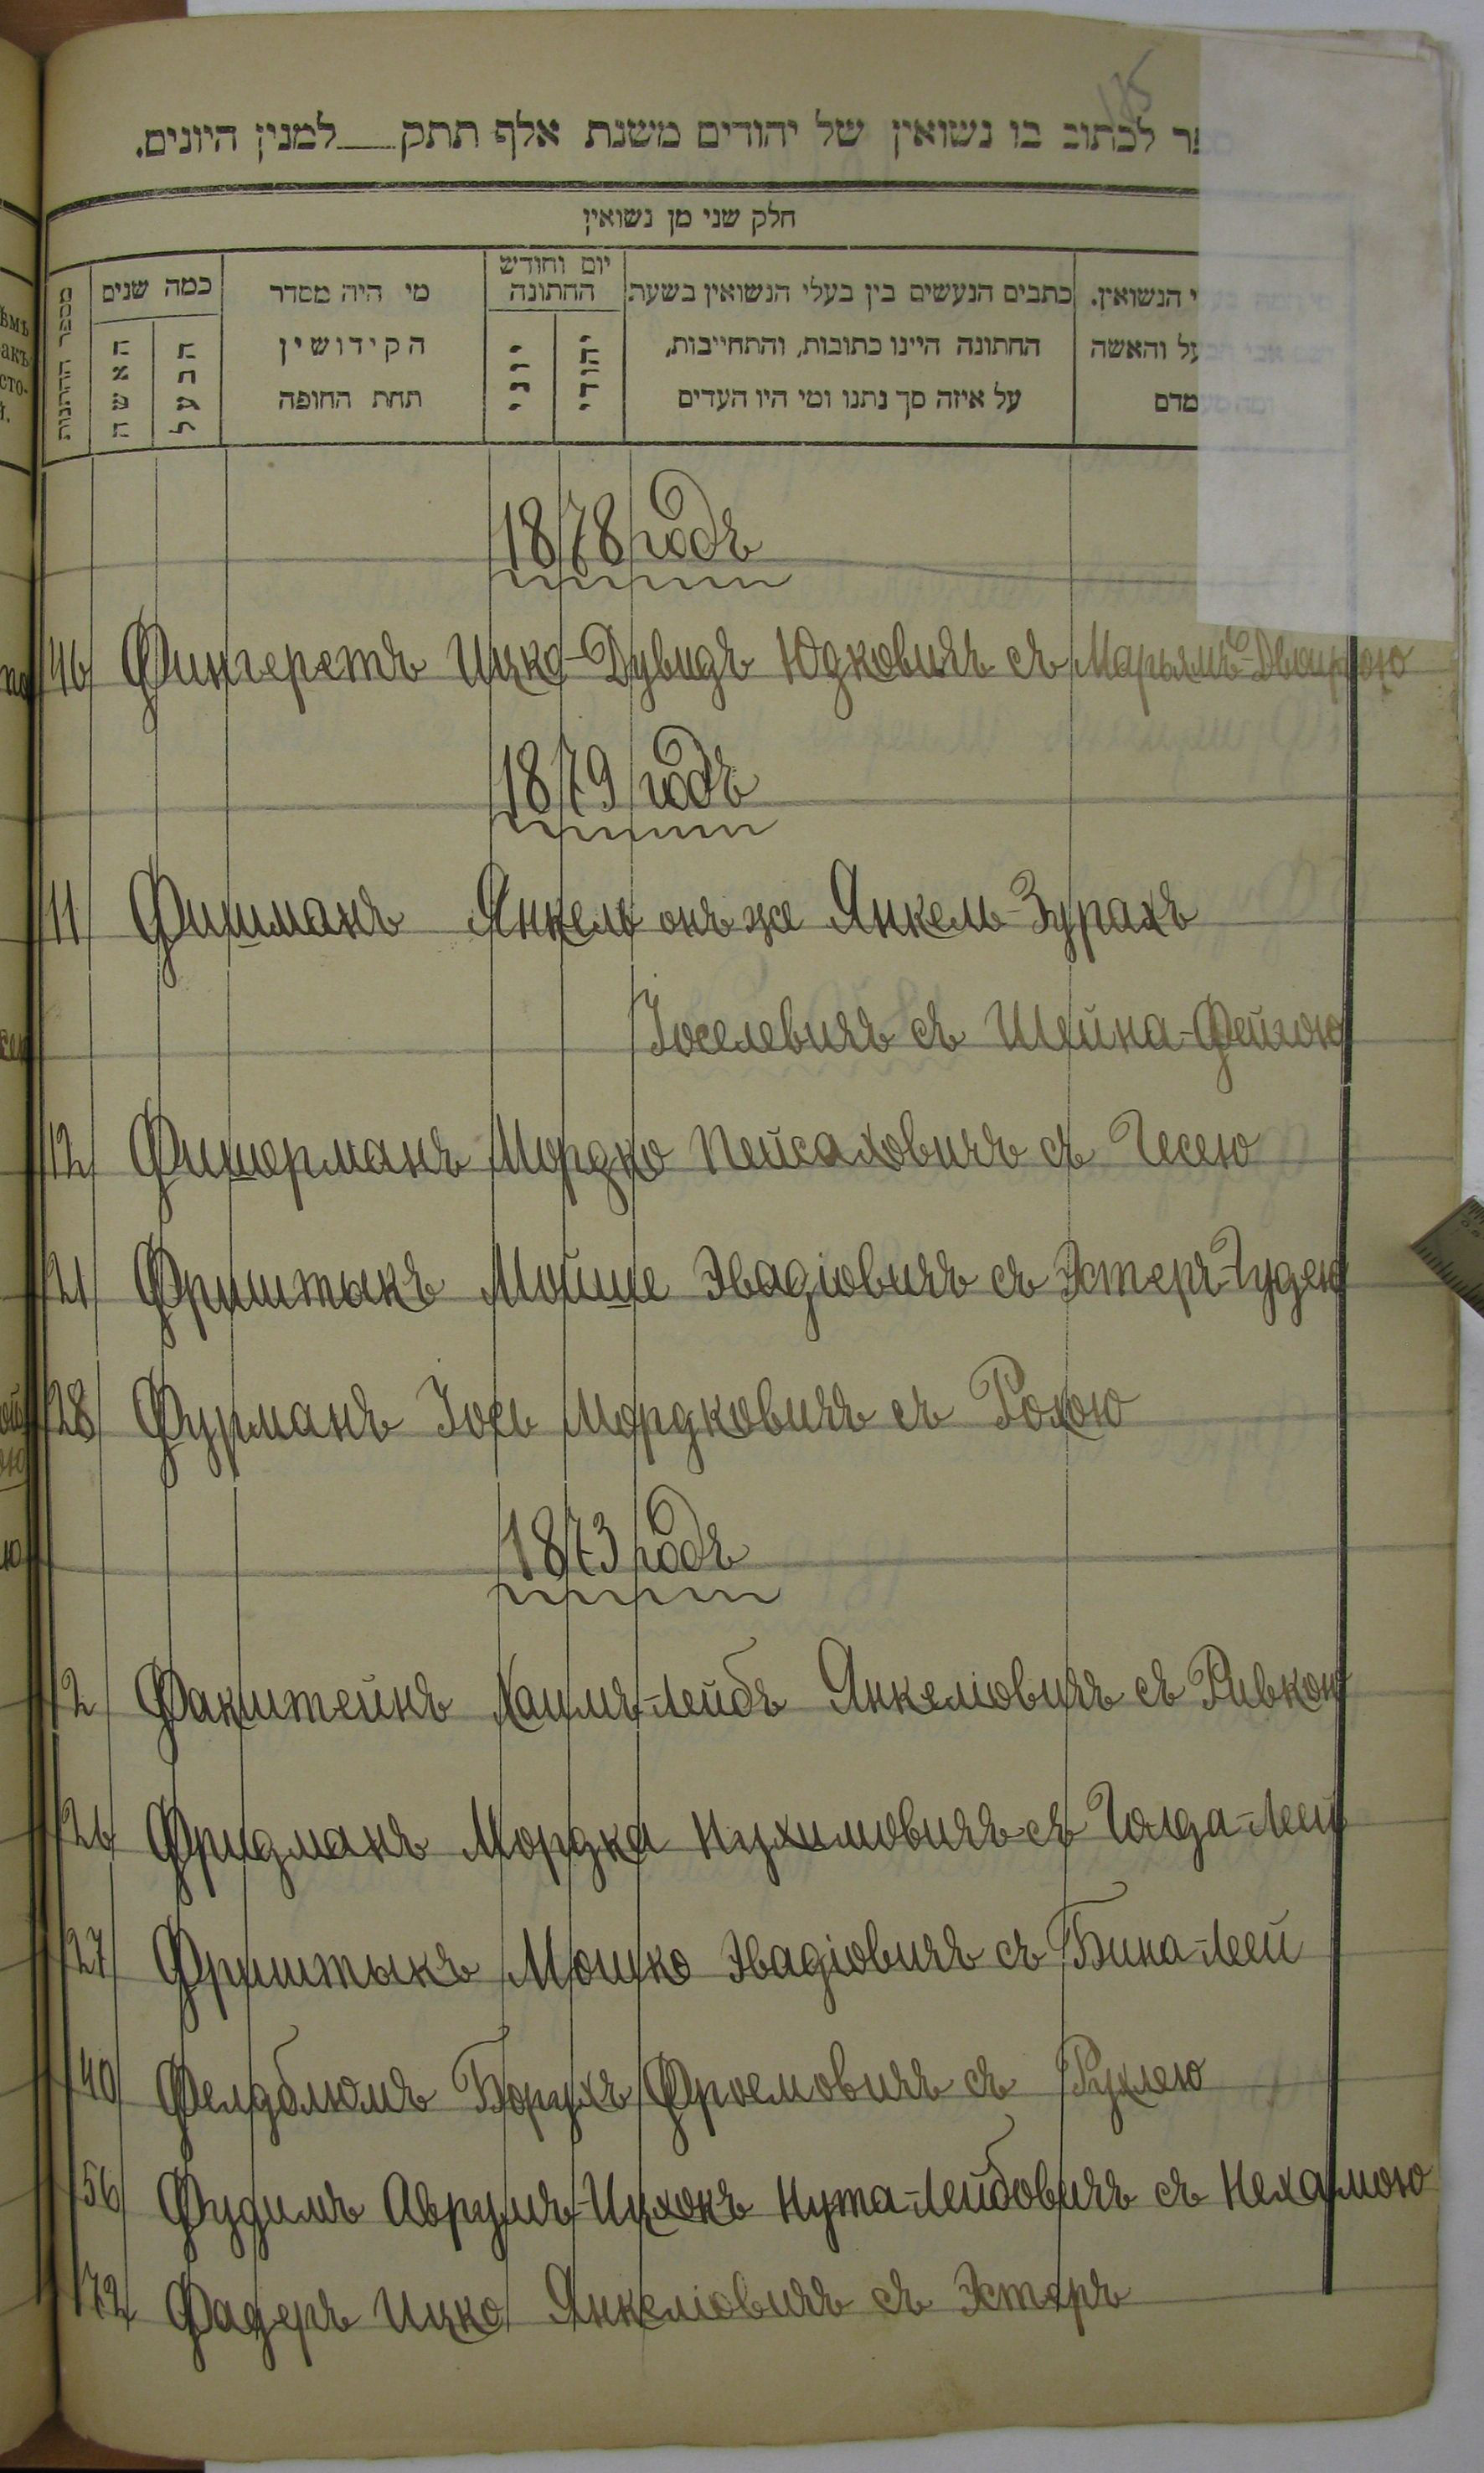 185
ספר לכתוב בו נשואין של יהודים משנת אלף תתק___למנין היונים.
חלק שני מן נשואין
מספר החתונות
כמה שנים
האשה
הבעל
מי היה מסדר
הקידושין
תחת החופה
יום וחודש
החתונה
יוני
יהודי
כתבים הנעשים בין בעלי הנשואין בשעת
החתונה היינו כתובות, והתחייבות,
על איזה סך נתנו ומי היו העדים
י הנשואין.
על והאשה
מדם
1878 годъ
46 Фингеретъ Ицко-Дувидъ Юдковичъ съ Марьямъ-Двойрою
1879 годъ
11 Фишманъ Янкель онъ же Янкель-Зурахъ
Іоселевичъ съ Шейна-Фейгою
12 Фишерманъ Мордко Пейсаховичъ съ Чесею
21 Фриштыкъ Мойше Эвадіовичъ съ Эстеръ-Гудею
28 Фурманъ Іось Мордковичъ съ Рохою
1873 годъ
2 Факштейнъ Хаимъ-Лейбъ Янкеліовичъ съ Ривкою
26 Фридманъ Мордка Нухимовичъ съ Голда-Леей
27 Фриштыкъ Мошко Эвадіовичъ съ Бина-Леей
40 Фелдблюмъ Борухъ Фроемовичъ съ Рухлею
56 Фудимъ Аврумъ-Ицхокъ Нута-Лейбовичъ съ Нехамою
72 Фадеръ Ицко Янкеліовичъ съ Эстеръ